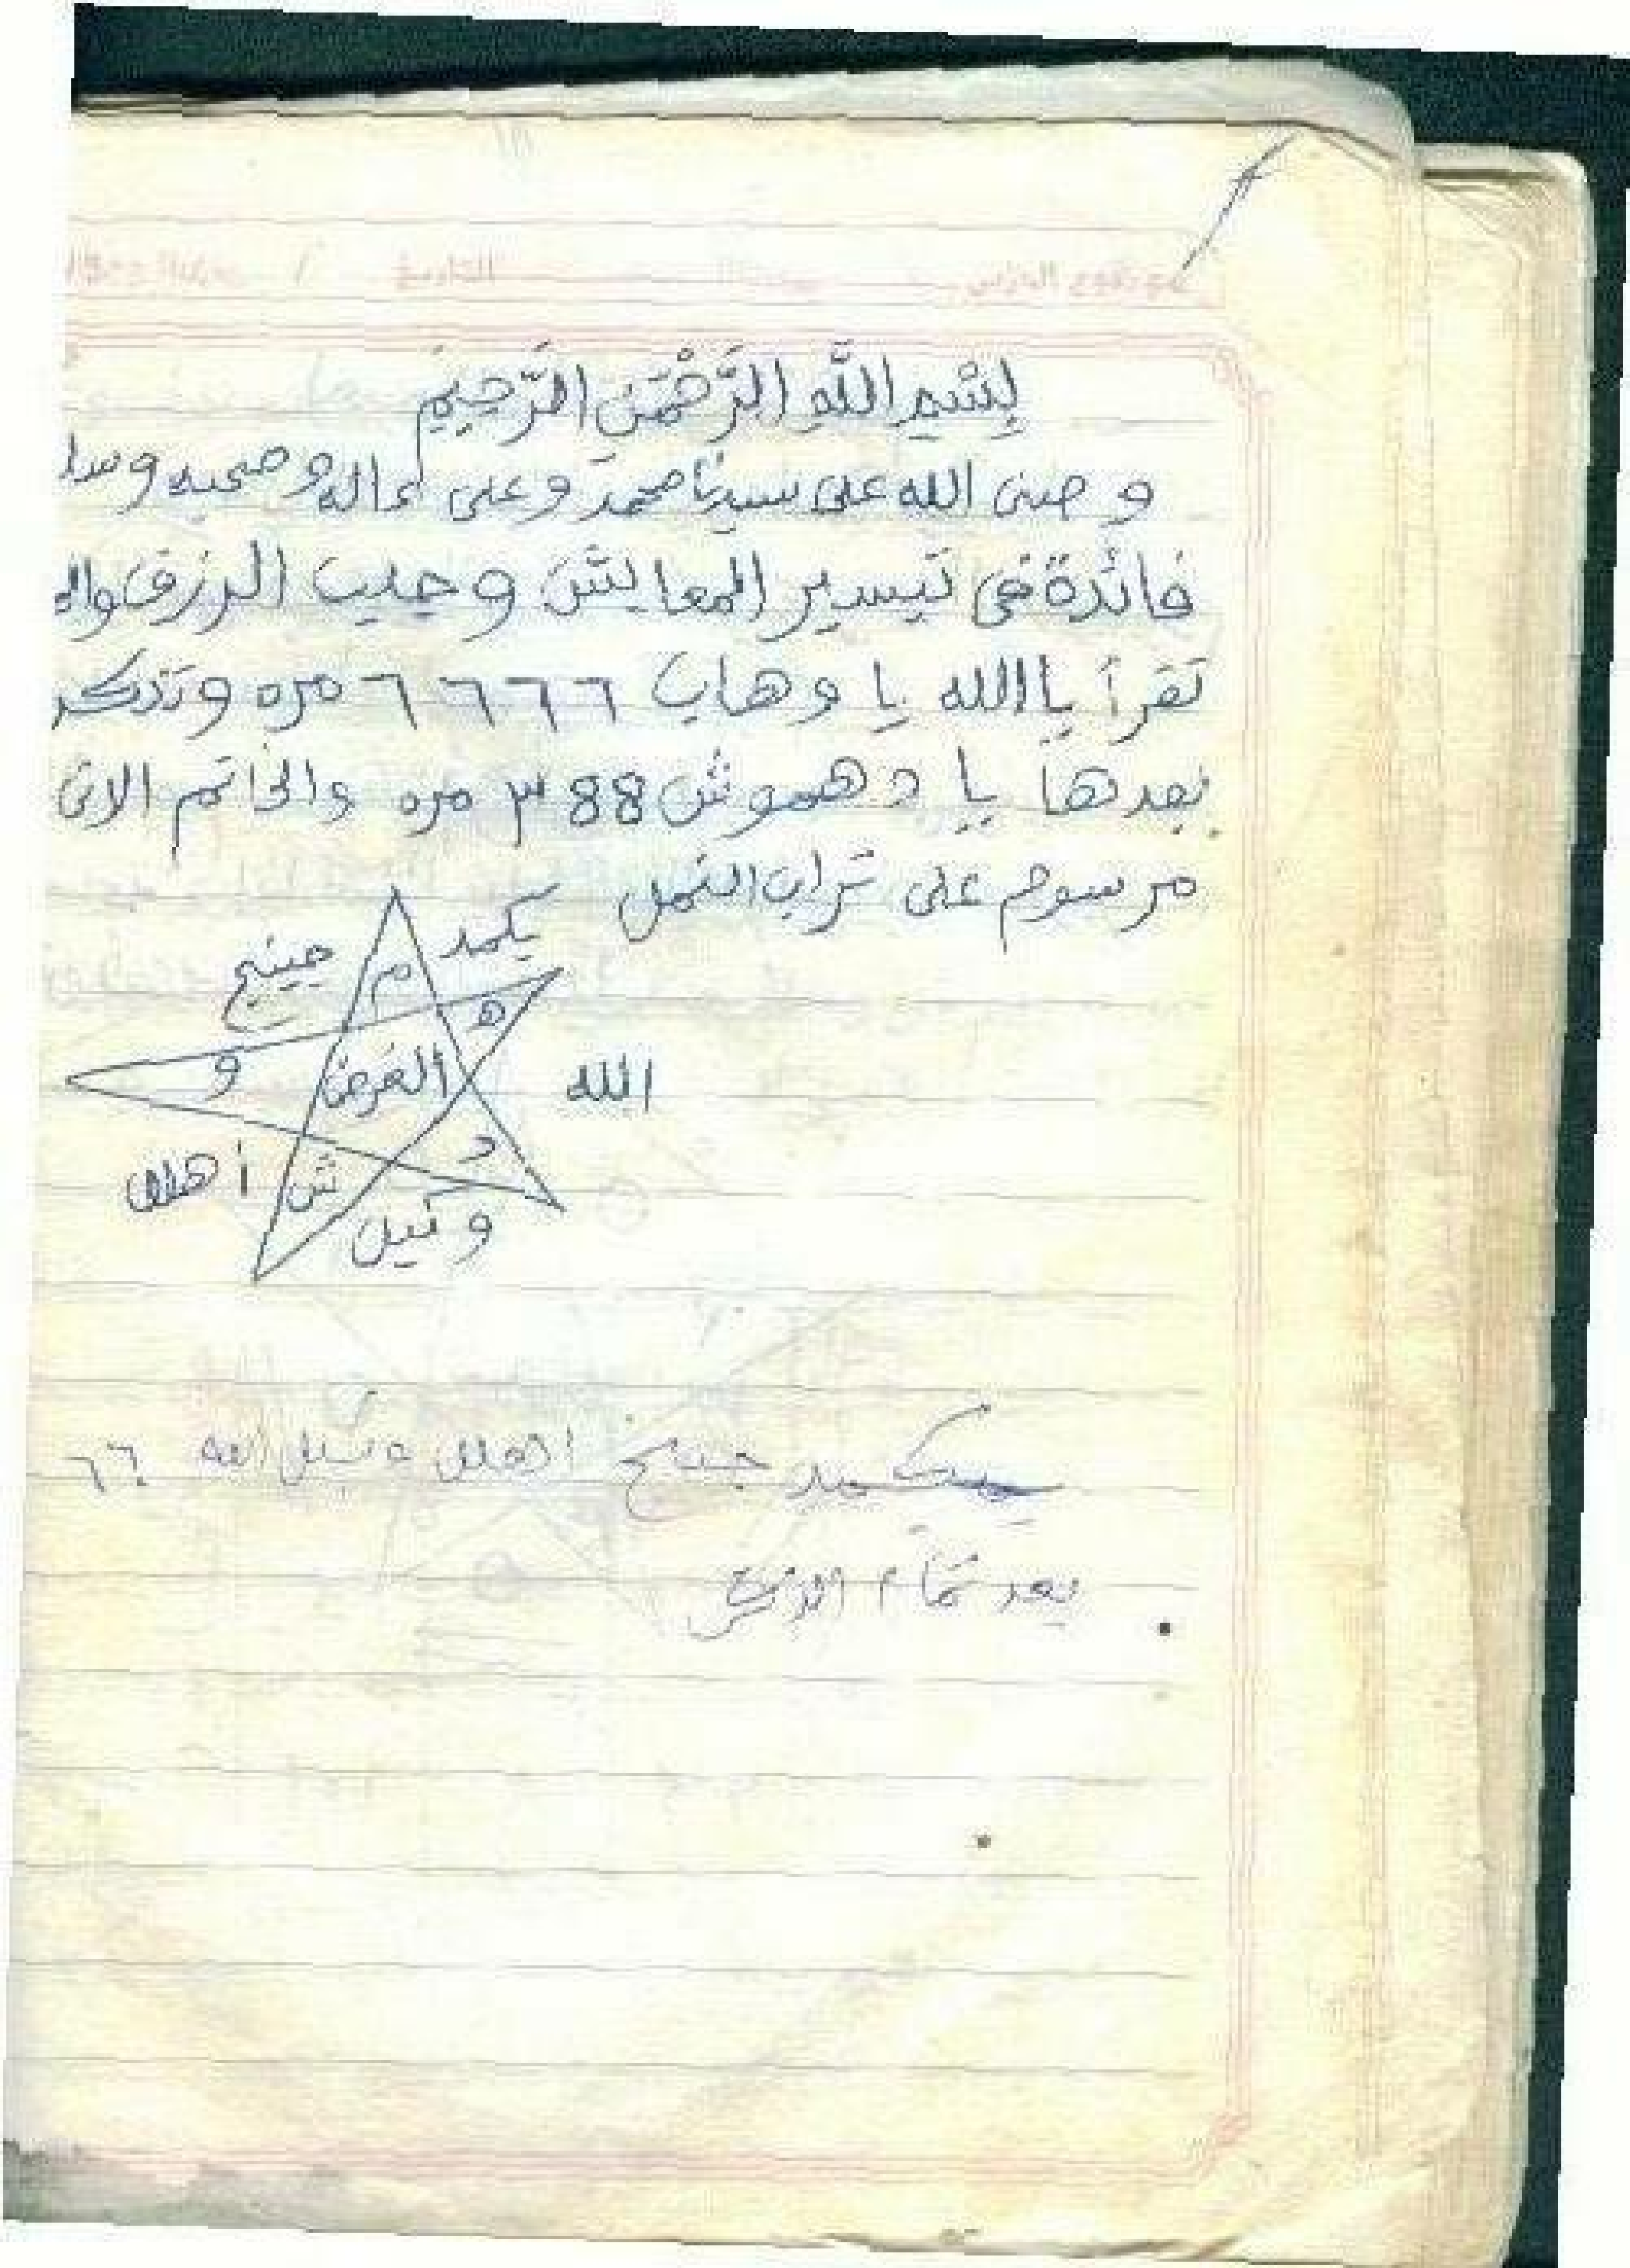 بِسْمِ اللَّهِ الرَّحْمَنِ الرَّحِيمِ
و صلى الله على سيدنا محمد وعلى ءاله وصحبه وسلـ
فائدة فى تيسير المعايش وجلب الرزق واله
تقرأ يا الله يا وهاب ٦٦٦٦ مره وتذكر
بعدها يا دهموش ٣88 مره والخاتم الاتى
مرسوم على تراب النمل
يكمد
جينج
م
ه
و
الغرض
الله
د
ش
أهلل
وكيل
جينج أهلل وكيل الله ٦٦
بعد تمام